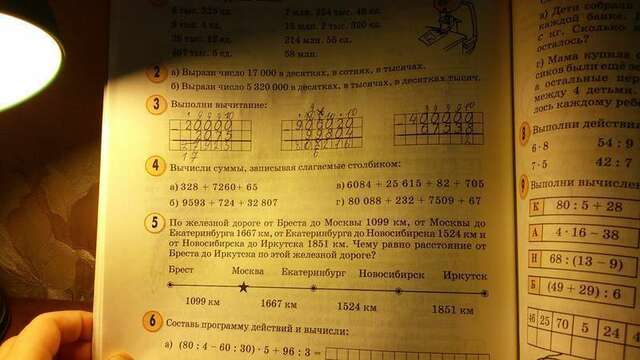 6 тыс. 325 ед.
2 млн. 354 тыс. 48 ед.
9 тыс. 4 ед.
15 млн. 2 тыс. 320 ед.
214 млн. 56 ед.
407 тыс. 6 ед.
58 млн.
2 а) Вырази число 17 000 в десятках, в сотнях, в тысячах.
б) Вырази число 5 320 000 в десятках, в тысячах, в десятках тысяч.
3 Выполни вычитание:
4 Вычисли суммы, записывая слагаемые столбиком:
а) 328 + 7260 + 65
в) 6084 + 25 615 + 82 + 705
б) 9593 + 724 + 32 807
г) 80 088 + 232 + 7509 + 67
5 По железной дороге от Бреста до Москвы 1099 км, от Москвы до
Екатеринбурга 1667 км, от Екатеринбурга до Новосибирска 1524 км и
от Новосибирска до Иркутска 1851 км. Чему равно расстояние от
Бреста до Иркутска по этой железной дороге?
Брест Москва Екатеринбург Новосибирск Иркутск
1099 км 1667 км 1524 км 1851 км
6 Составь программу действий и вычисли:
а) (80 : 4 − 60 : 30) · 5 + 96 : 3 =
а) Дети собрали
каждой банке.
с кг. Сколько
осталось?
г) Мама купила
сиков были ещё
а остальные
между 4 детьми.
лось каждому
8 Выполни действия
6 · 8 54 : 9
7 · 5 42 : 7
9 Выполни вычисле
К 80 : 5 + 28
А 4 · 16 − 38
Н 68 : (13 − 9)
Б (49 + 29) : 6
46 25 70 5 24